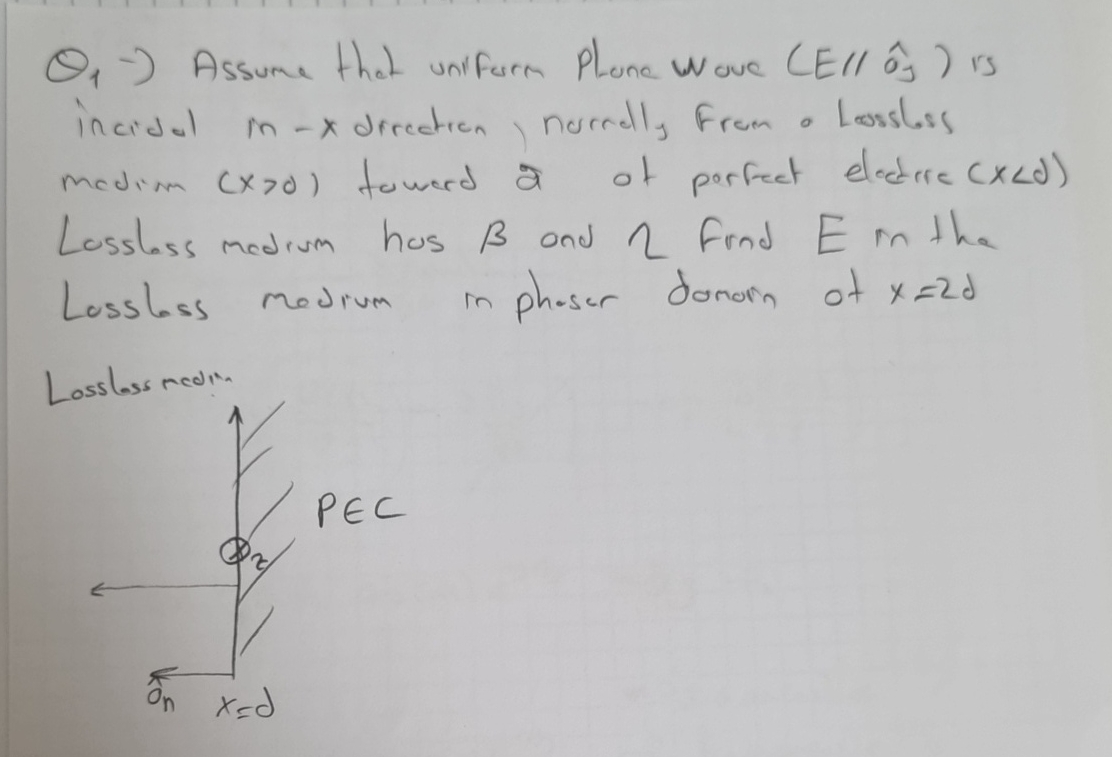 Q1 -) Assume that uniform Plane Wave (E// ây) is
incidal in -x direction, normally From a Lossless
medium (x>d) toward a at perfect electric (x<d)
Lossless medium has β and η Find E in the
Lossless medium in phaser domain at x=2d
Lossless medium
PEC
z
ân x=d